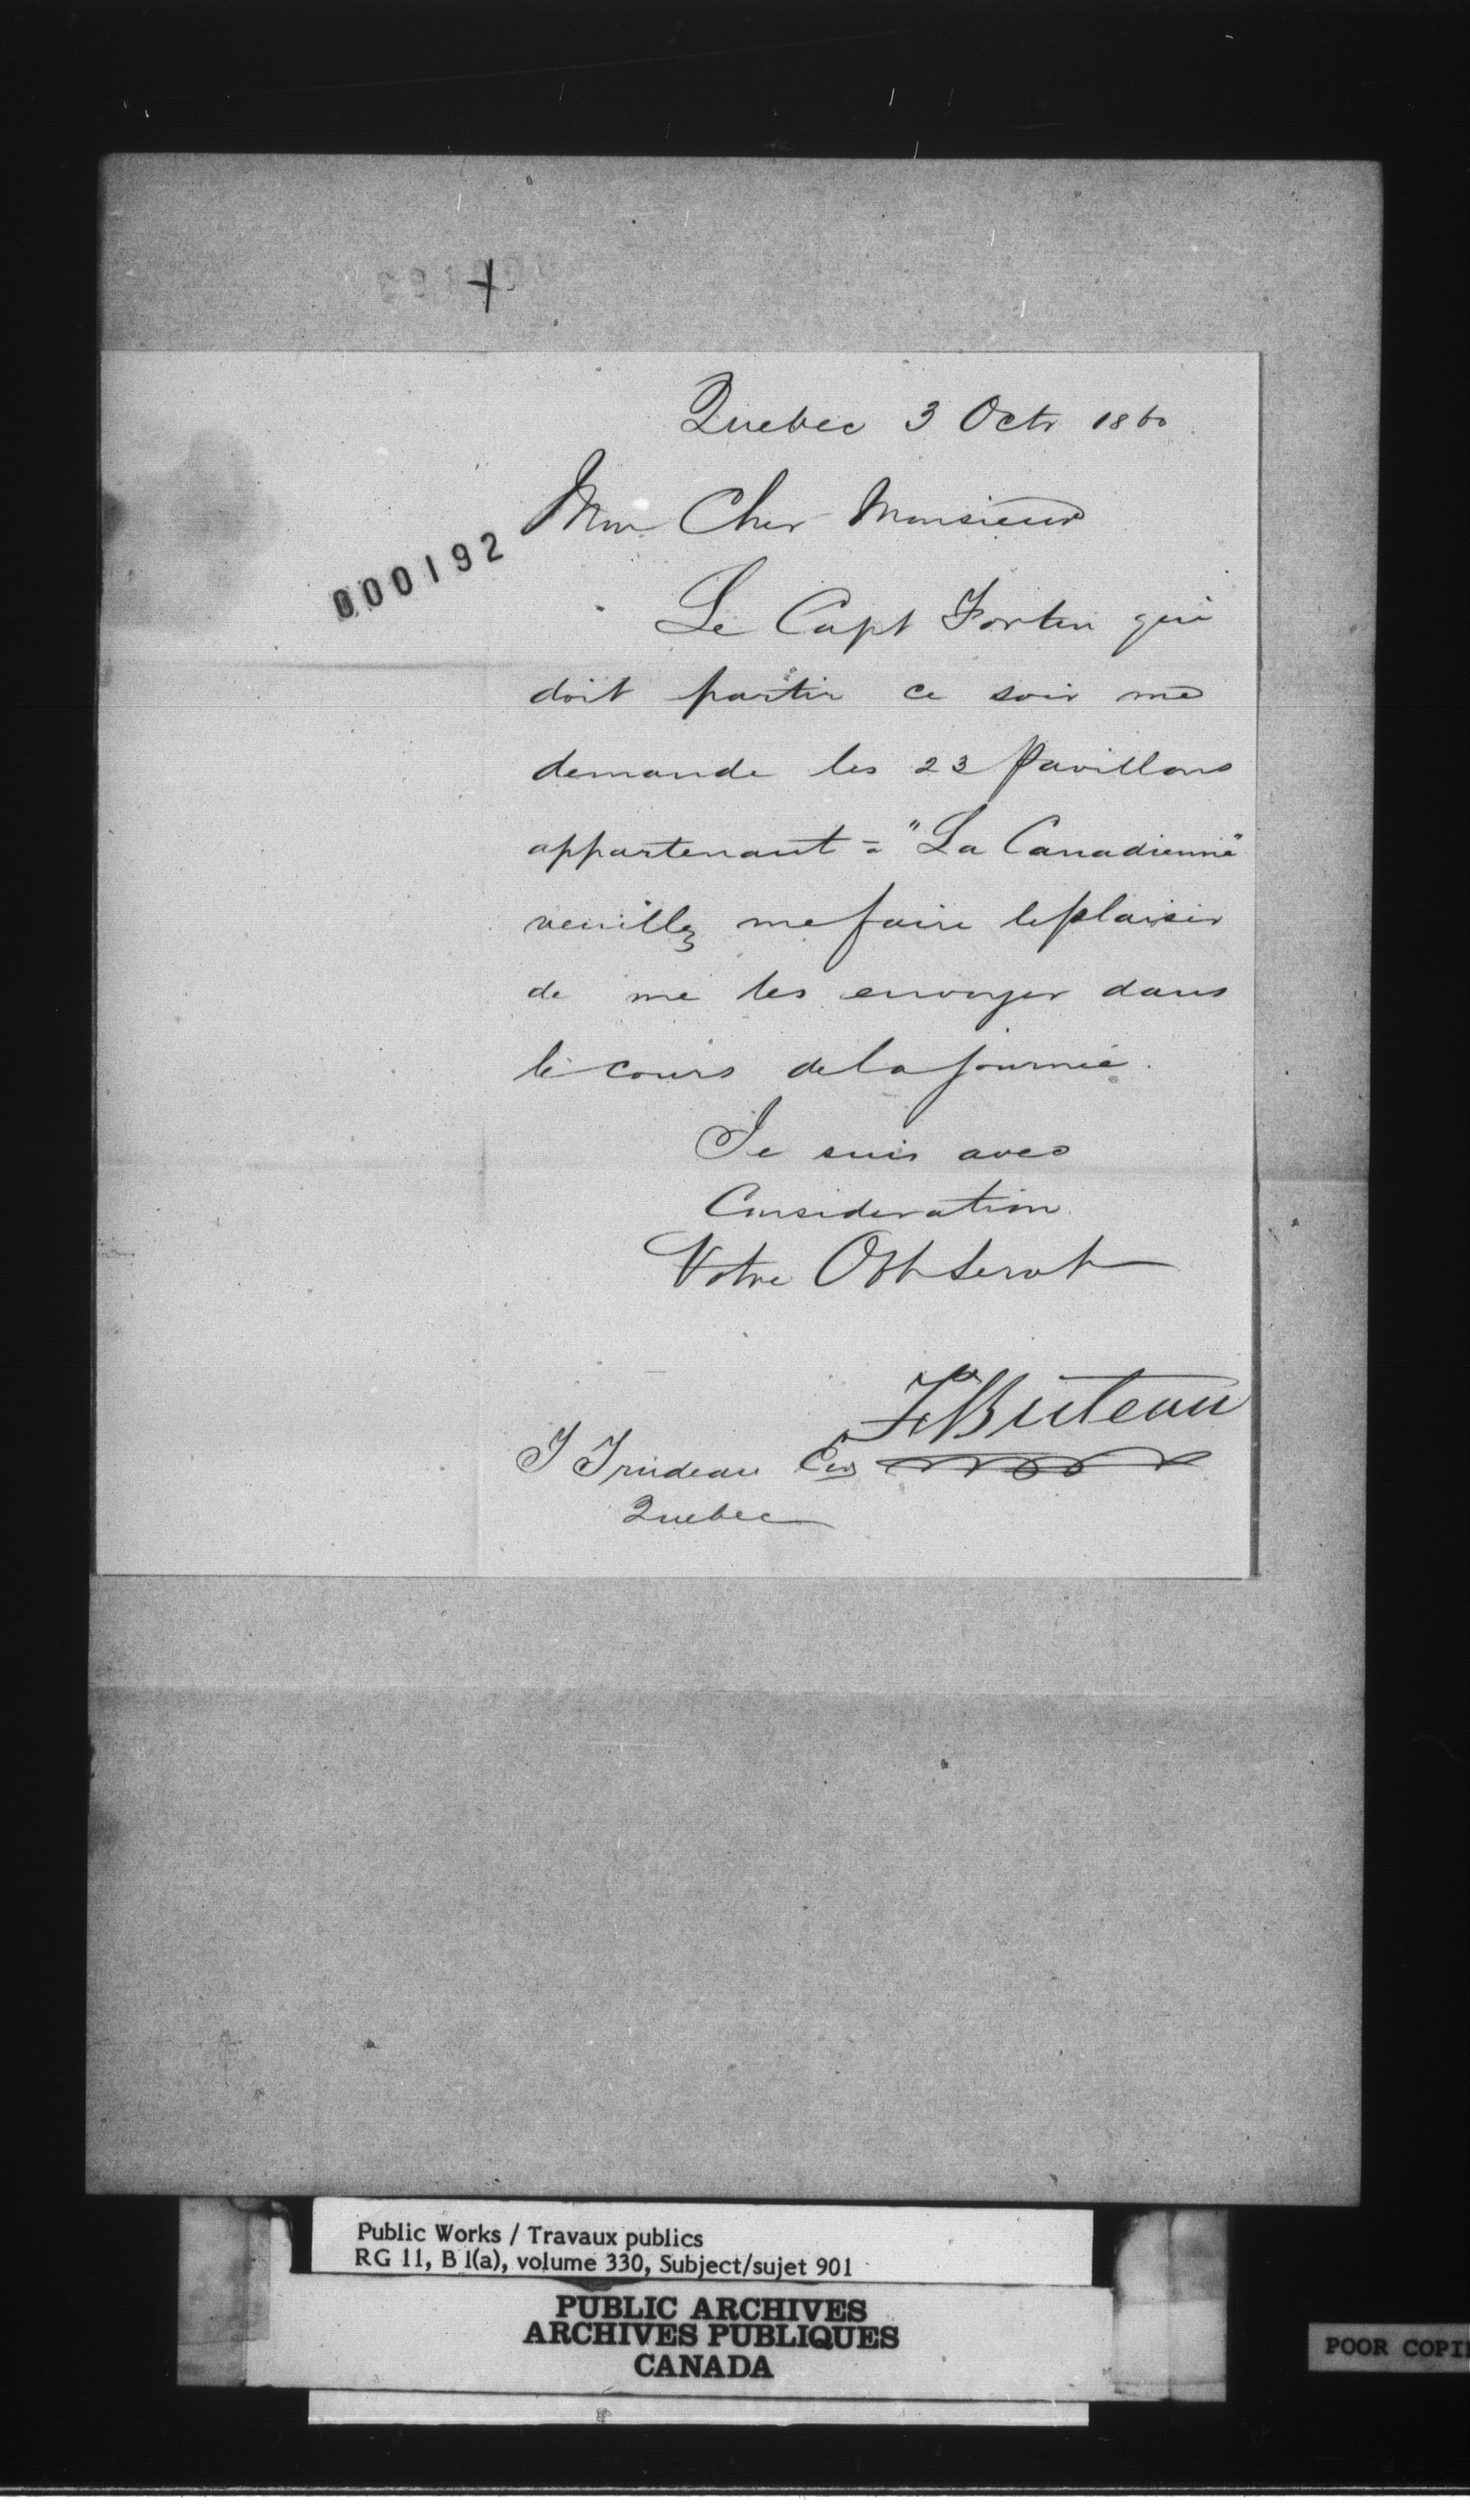 Quebec 3 Octr 1860
Mon Cher Monsieur
000192
Le Capt Fortin qui
doit partir ce soir me
demande les 23 Pavillons
appartenant à "La Canadienne"
veuillez me faire le plaisir
de me les envoyer dans
le cours de la journée.
Je suis avec
Consideration
Votre Obt Servt
F Buteau
T Trudeau
Quebec
Public Works / Travaux publics
RG 11, B 1(a), volume 330, Subject/sujet 901
PUBLIC ARCHIVES
ARCHIVES PUBLIQUES
CANADA
POOR COPI